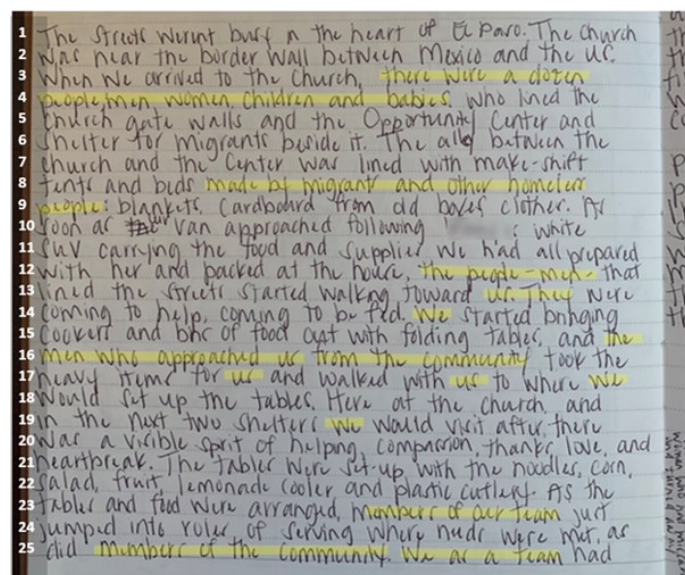 1 The streets werent busy in the heart of El Paso. The church
2 was near the border wall between Mexico and the US.
3 When we arrived to the church, there were a dozen
4 people, men, women, children and babies, who lined the
5 church gate walls and the Opportunity Center and
6 shelter for migrants beside it. The ally between the
7 church and the Center was lined with make-shift
8 tents and beds made by migrants and other homeless
9 people: blankets, cardboard from old boxes, clother. As
10 soon as our van approached following white
11 SUV carrying the food and supplies we had all prepared
12 with her and packed at the house, the people-men-that
13 lined the streets started walking toward us. They were
14 coming to help, coming to be fed. We started bringing
15 cookers and bins of food out with folding tables, and the
16 men who approached us from the community took the
17 heavy items for us and walked with us to where we
18 would set up the tables. Here at the church, and
19 in the next two shelters we would visit after, there
20 was a visible sprit of helping, compassion, thanks, love, and
21 heartbreak. The tables were set-up with the noodles, corn,
22 salad, fruit, lemonade cooler and plastic cutlery. As the
23 tables and food were arranged, members of our team just
24 jumped into roles of serving where needs were met, as
25 did members of the community. We as a team had